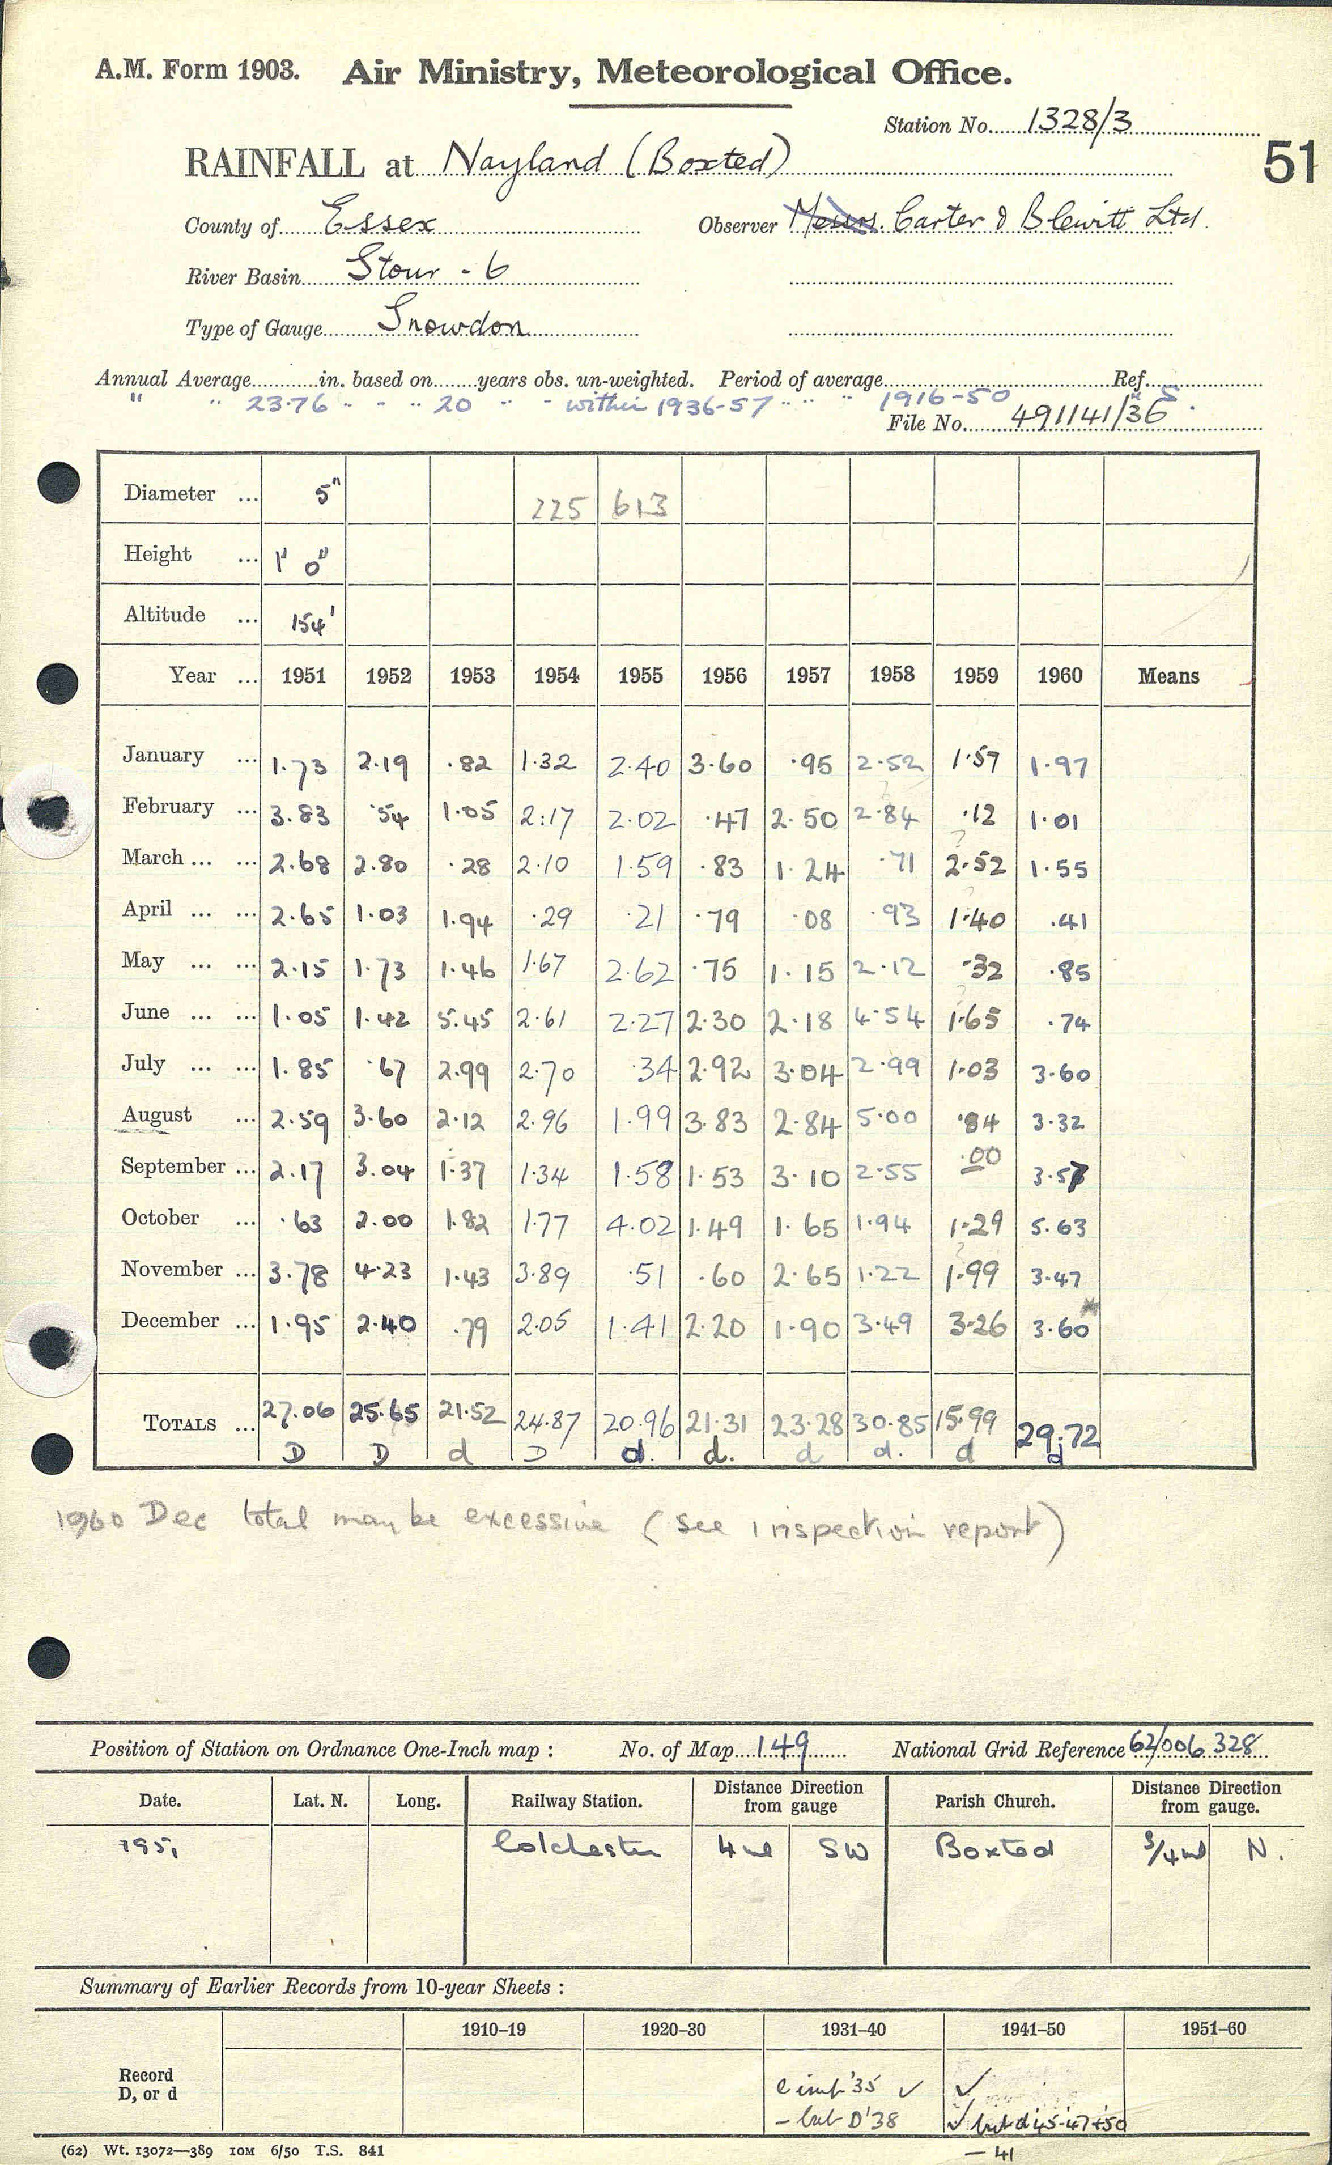 A.M. Form 1903. Air Ministry, Meteorological Office.
Station No. 1328/3
51
RAINFALL at Nayland (Boxted)
County of Essex Observer Messrs. Carter & Blewitt Ltd.
River Basin Stour - 6
Type of Gauge Snowdon
Annual Average in. based on years obs. un-weighted. Period of average Ref.
" " 23.76 - - " 20 " " - within 1936-57 " " " 1916-50 S.
File No. 491141/36
Diameter ... 5" 225 613
Height ... 1' 0"
Altitude ... 154'
Year ... 1951 1952 1953 1954 1955 1956 1957 1958 1959 1960 Means
January ... 1.73 2.19 .82 1.32 2.40 3.60 .95 2.52 1.57 1.97
February ... 3.83 .54 1.05 2.17 2.02 .47 2.50 2.84 .12 1.01
March ... ... 2.68 2.80 .28 2.10 1.59 .83 1.24 .71 2.52 1.55
April ... ... 2.65 1.03 1.94 .29 .21 .79 .08 .93 1.40 .41
May ... ... 2.15 1.73 1.46 1.67 2.62 .75 1.15 2.12 .32 .85
June ... ... 1.05 1.42 5.45 2.61 2.27 2.30 2.18 4.54 1.65 .74
July ... ... 1.85 .67 2.99 2.70 .34 2.92 3.04 2.99 1.03 3.60
August ... 2.59 3.60 2.12 2.96 1.99 3.83 2.84 5.00 .84 3.32
September ... 2.17 3.04 1.37 1.34 1.58 1.53 3.10 2.55 .00 3.57
October ... .63 2.00 1.82 1.77 4.02 1.49 1.65 1.94 1.29 5.63
November ... 3.78 4.23 1.43 3.89 .51 .60 2.65 1.22 1.99 3.47
December ... 1.95 2.40 .79 2.05 1.41 2.20 1.90 3.49 3.26 3.60*
TOTALS ... 27.06 25.65 21.52 24.87 20.96 21.31 23.28 30.85 15.99 29.72
D D d D d. d. d d. d d
1960 Dec total may be excessive (see inspection report)
Position of Station on Ordnance One-Inch map : No. of Map 149 National Grid Reference 62/006 328
Date. Lat. N. Long. Railway Station. Distance Direction from gauge Parish Church. Distance Direction from gauge.
1951 Colchester 4 ml SW Boxted 3/4 ml N.
Summary of Earlier Records from 10-year Sheets :
1910–19 1920–30 1931–40 1941–50 1951–60
Record D, or d
'35 ✓ ✓
- but D '38 ✓ but d 45-47+50
(62) Wt. 13072—389 10M 6/50 T.S. 841
- 41